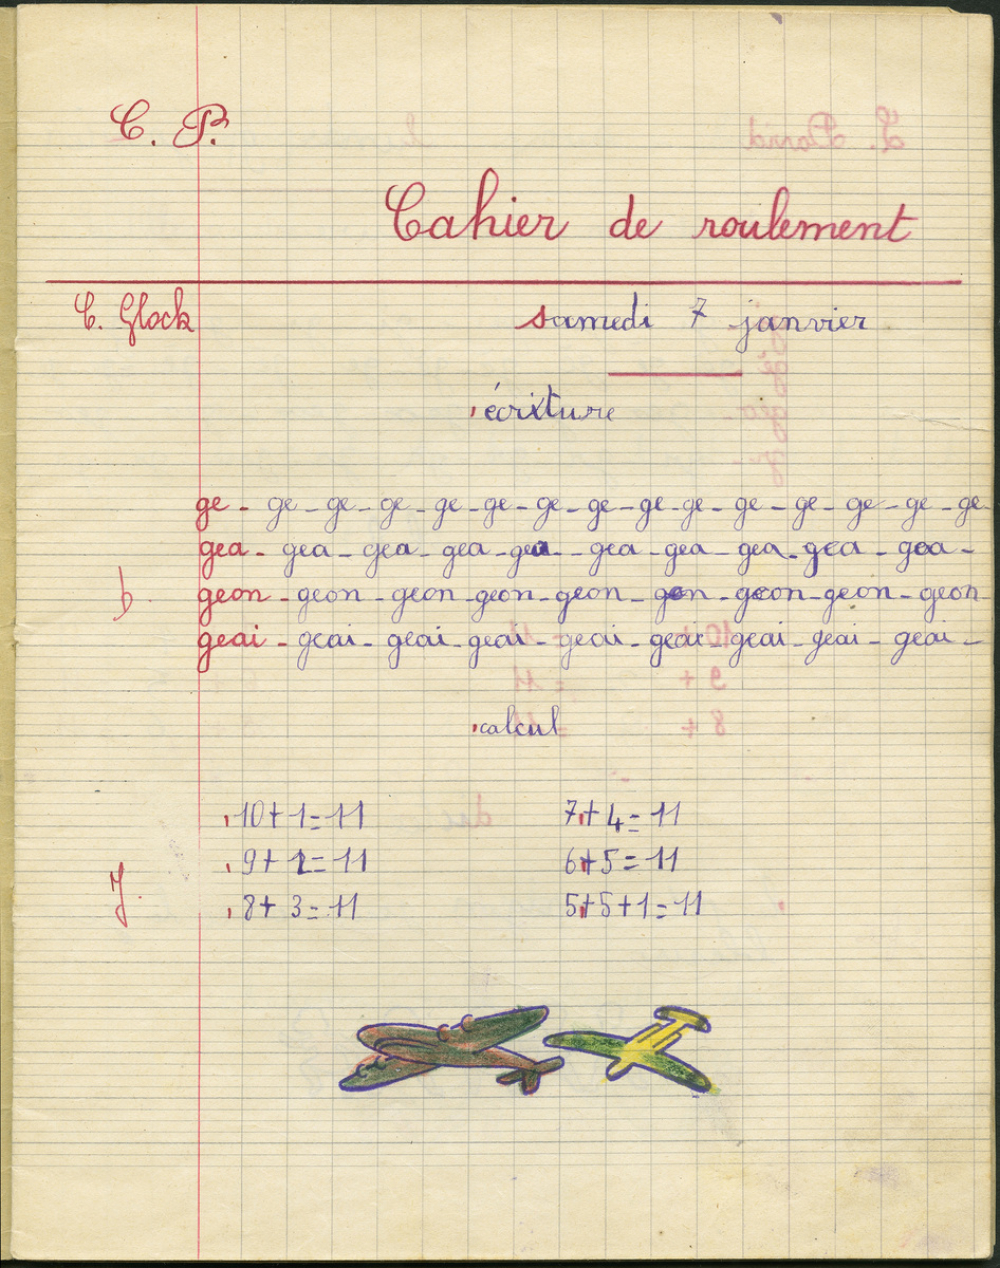 C. P.
Cahier de roulement
C. Glock
samedi 7 janvier
écriture
ge - ge - ge - ge - ge - ge - ge - ge - ge - ge - ge - ge - ge - ge - ge
gea - gea - gea - gea - gea - gea - gea - gea - gea - gea -
geon - geon - geon - geon - geon - geon - geon - geon - geon
geai - geai - geai - geai - geai - geai - geai - geai - geai -
calcul
10+1=11 7+4=11
9+2=11 6+5=11
8+3=11 5+5+1=11